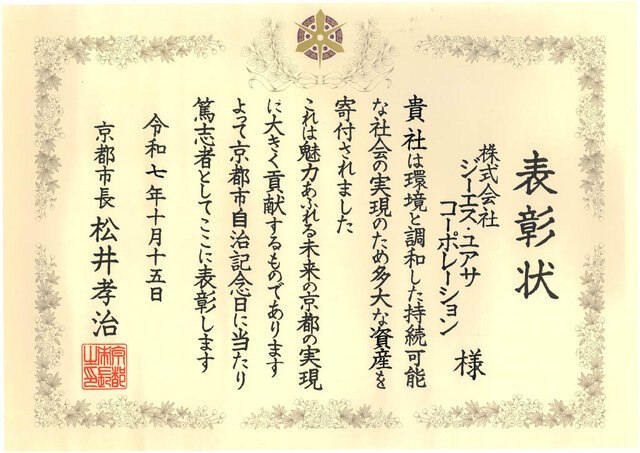 表彰状
株式会社
ジーエス・ユアサ
コーポレーション
様
貴社は環境と調和した持続可能
な社会の実現のため多大な資産を
寄付されました
これは魅力あふれる未来の京都の実現
に大きく貢献するものであります
よって京都市自治記念日に当たり
篤志者としてここに表彰します
令和七年十月十五日
京都市長 松井孝治
京都
市長
之印